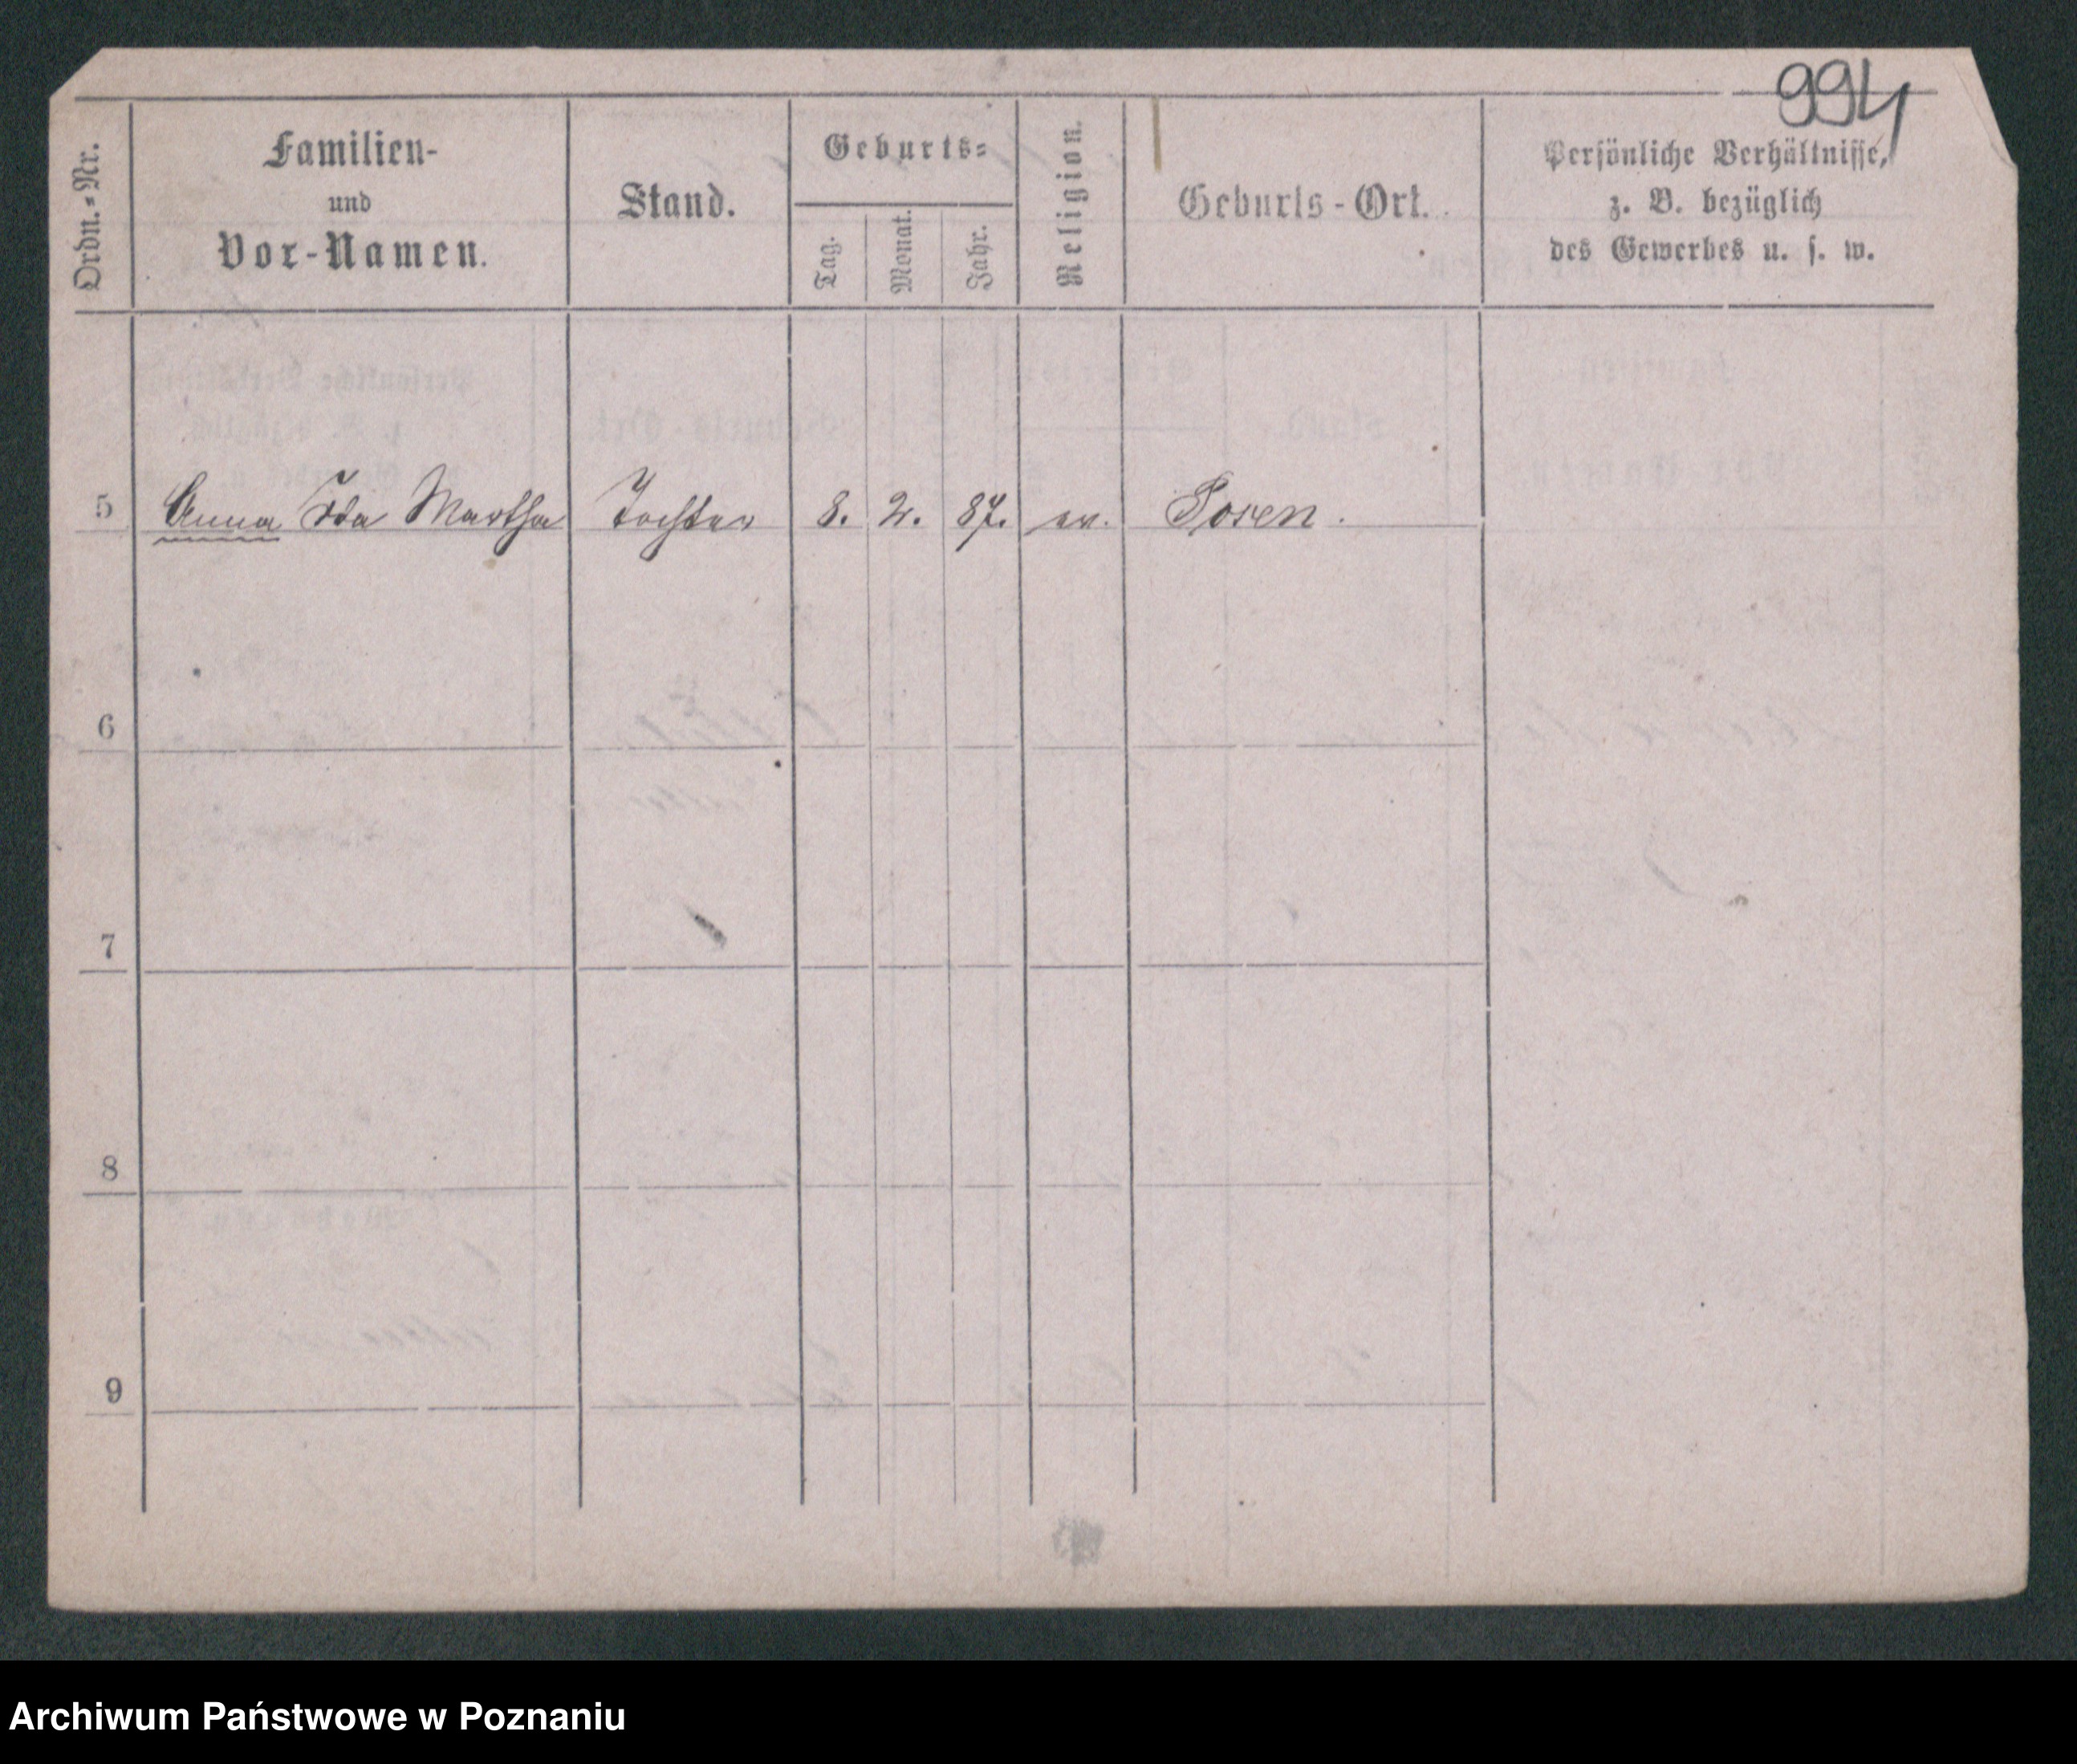 994
Ordn.-Nr.
Familien-
und
Vor-Namen.
Stand.
Geburts-
Tag.
Monat.
Jahr.
Religion.
Geburts-Ort.
Persönliche Verhältnisse,
z. B. bezüglich
des Gewerbes u. s. w.
5 Anna Ida Martha Tochter 8. 2. 87. ev. Posen.
6
7
8
9
Archiwum Państwowe w Poznaniu